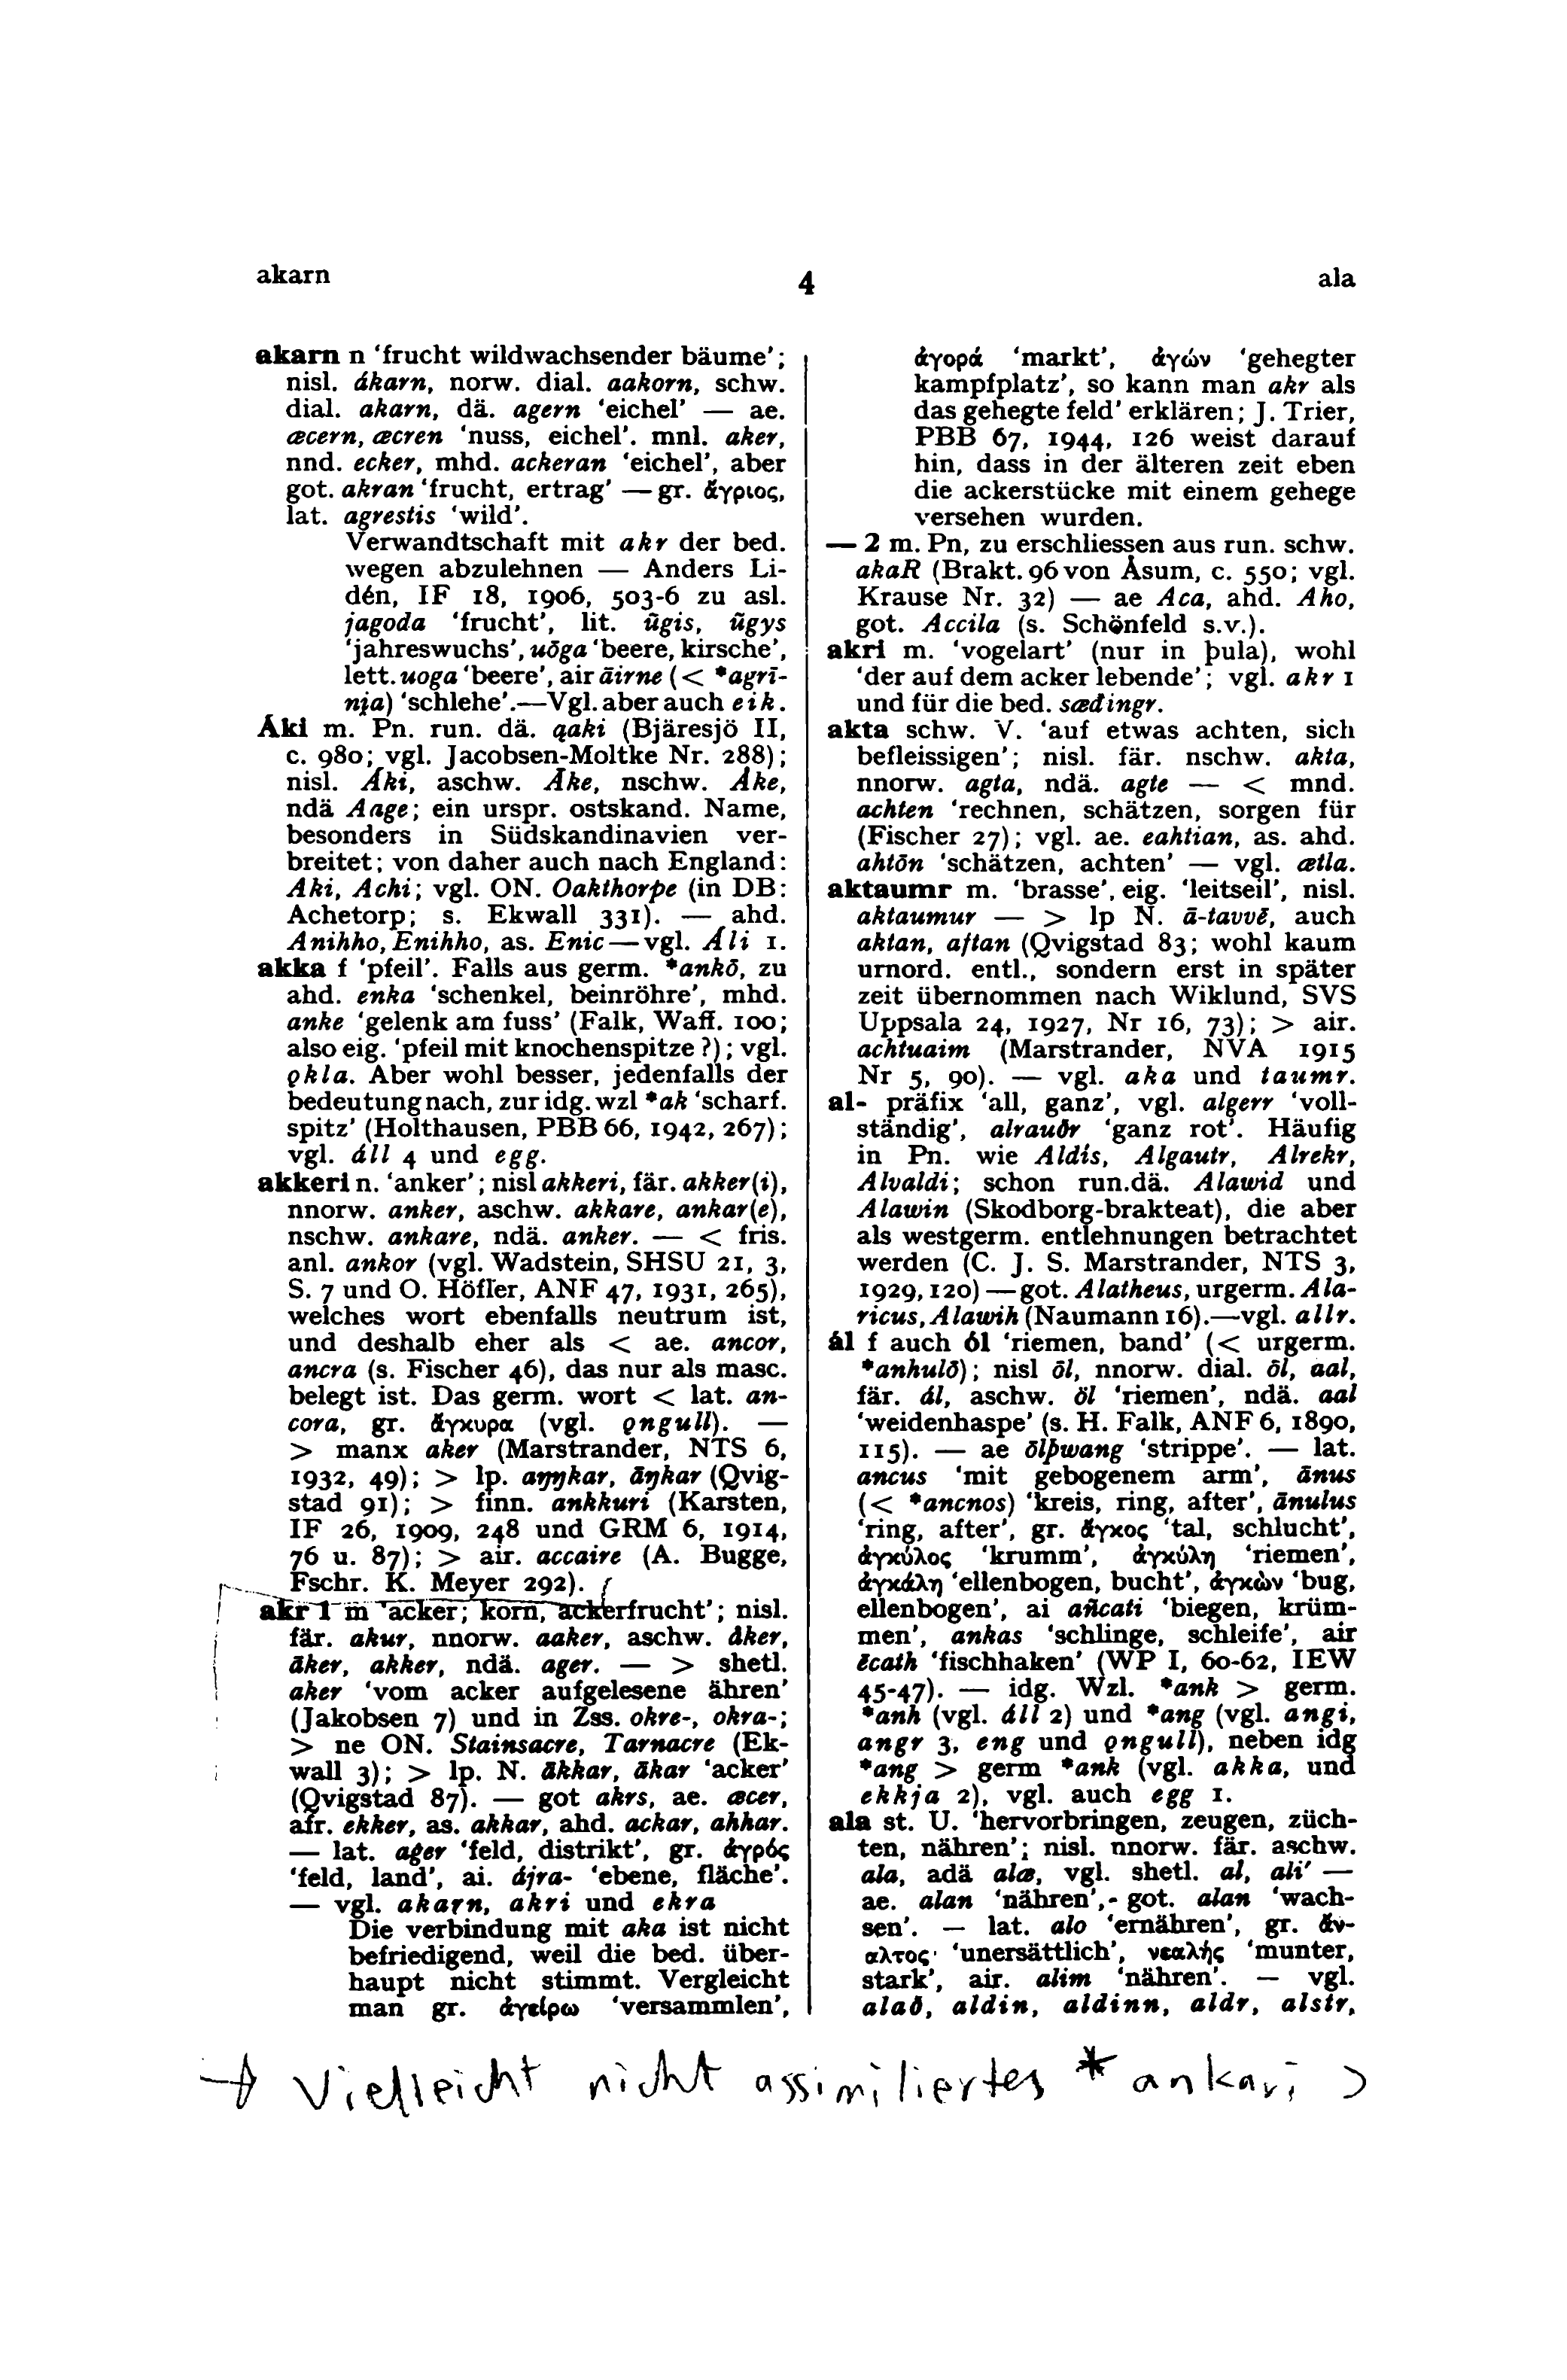 akarn
4
ala
akarn n ‘frucht wildwachsender bäume’;
nisl. ákarn, norw. dial. aakorn, schw.
dial. akarn, dä. agern ‘eichel’ — ae.
æcern, æcren ‘nuss, eichel’. mnl. aker,
nnd. ecker, mhd. ackeran ‘eichel’, aber
got. akran ‘frucht, ertrag’ — gr. ἄγριος,
lat. agrestis ‘wild’.
Verwandtschaft mit akr der bed.
wegen abzulehnen — Anders Li-
dén, IF 18, 1906, 503-6 zu asl.
jagoda ‘frucht’, lit. ūgis, ūgys
‘jahreswuchs’, uōga ‘beere, kirsche’,
lett. uoga ‘beere’, air āirne (< *agrī-
ni̯a) ‘schlehe’.—Vgl. aber auch eik.
Áki m. Pn. run. dä. ąaki (Bjäresjö II,
c. 980; vgl. Jacobsen-Moltke Nr. 288);
nisl. Áki, aschw. Āke, nschw. Åke,
ndä Aage; ein urspr. ostskand. Name,
besonders in Südskandinavien ver-
breitet; von daher auch nach England:
Aki, Achi; vgl. ON. Oakthorpe (in DB:
Achetorp; s. Ekwall 331). — ahd.
Anihho, Enihho, as. Enic — vgl. Áli 1.
akka f ‘pfeil’. Falls aus germ. *ankō, zu
ahd. enka ‘schenkel, beinröhre’, mhd.
anke ‘gelenk am fuss’ (Falk, Waff. 100;
also eig. ‘pfeil mit knochenspitze?); vgl.
ǫkla. Aber wohl besser, jedenfalls der
bedeutung nach, zur idg. wzl *ak ‘scharf.
spitz’ (Holthausen, PBB 66, 1942, 267);
vgl. áll 4 und egg.
akkeri n. ‘anker’; nisl akkeri, fär. akker(i),
nnorw. anker, aschw. akkare, ankar(e),
nschw. ankare, ndä. anker. — < fris.
anl. ankor (vgl. Wadstein, SHSU 21, 3,
S. 7 und O. Höfler, ANF 47, 1931, 265),
welches wort ebenfalls neutrum ist,
und deshalb eher als < ae. ancor,
ancra (s. Fischer 46), das nur als masc.
belegt ist. Das germ. wort < lat. an-
cora, gr. ἄγκυρα (vgl. ǫngull). —
> manx aker (Marstrander, NTS 6,
1932, 49); > lp. aŋŋkar, āŋkar (Qvig-
stad 91); > finn. ankkuri (Karsten,
IF 26, 1909, 248 und GRM 6, 1914,
76 u. 87); > air. accaire (A. Bugge,
Fschr. K. Meyer 292).
akr 1 m ‘acker; korn, ackerfrucht’; nisl.
fär. akur, nnorw. aaker, aschw. åker,
āker, akker, ndä. ager. — > shetl.
aker ‘vom acker aufgelesene ähren’
(Jakobsen 7) und in Zss. okre-, okra-;
> ne ON. Stainsacre, Tarnacre (Ek-
wall 3); > lp. N. ākkar, ākar ‘acker’
(Qvigstad 87). — got akrs, ae. æcer,
afr. ekker, as. akkar, ahd. ackar, ahhar.
— lat. ager ‘feld, distrikt’, gr. ἀγρός
‘feld, land’, ai. ájra- ‘ebene, fläche’.
— vgl. akarn, akri und ekra
Die verbindung mit aka ist nicht
befriedigend, weil die bed. über-
haupt nicht stimmt. Vergleicht
man gr. ἀγείρω ‘versammlen’,
ἀγορά ‘markt’, ἀγών ‘gehegter
kampfplatz’, so kann man akr als
das gehegte feld’ erklären; J. Trier,
PBB 67, 1944, 126 weist darauf
hin, dass in der älteren zeit eben
die ackerstücke mit einem gehege
versehen wurden.
— 2 m. Pn, zu erschliessen aus run. schw.
akaR (Brakt. 96 von Åsum, c. 550; vgl.
Krause Nr. 32) — ae Aca, ahd. Aho,
got. Accila (s. Schönfeld s.v.).
akri m. ‘vogelart’ (nur in þula), wohl
‘der auf dem acker lebende’; vgl. akr 1
und für die bed. sædingr.
akta schw. V. ‘auf etwas achten, sich
befleissigen’; nisl. fär. nschw. akta,
nnorw. agta, ndä. agte — < mnd.
achten ‘rechnen, schätzen, sorgen für
(Fischer 27); vgl. ae. eahtian, as. ahd.
ahtōn ‘schätzen, achten’ — vgl. ætla.
aktaumr m. ‘brasse’, eig. ‘leitseil’, nisl.
aktaumur — > lp N. ā-tavvē, auch
aktan, aftan (Qvigstad 83; wohl kaum
urnord. entl., sondern erst in später
zeit übernommen nach Wiklund, SVS
Uppsala 24, 1927, Nr 16, 73); > air.
achtuaim (Marstrander, NVA 1915
Nr 5, 90). — vgl. aka und taumr.
al- präfix ‘all, ganz’, vgl. algerr ‘voll-
ständig’, alrauðr ‘ganz rot’. Häufig
in Pn. wie Aldis, Algautr, Alrekr,
Alvaldi; schon run.dä. Alawid und
Alawin (Skodborg-brakteat), die aber
als westgerm. entlehnungen betrachtet
werden (C. J. S. Marstrander, NTS 3,
1929, 120) — got. Alatheus, urgerm. Ala-
ricus, Alawih (Naumann 16).—vgl. allr.
ál f auch ól ‘riemen, band’ (< urgerm.
*anhulō); nisl ōl, nnorw. dial. ōl, aal,
fär. ál, aschw. öl ‘riemen’, ndä. aal
‘weidenhaspe’ (s. H. Falk, ANF 6, 1890,
115). — ae ōlþwang ‘strippe’. — lat.
ancus ‘mit gebogenem arm’, ānus
(< *ancnos) ‘kreis, ring, after’, ānulus
‘ring, after’, gr. ἄγκος ‘tal, schlucht’,
ἀγκύλος ‘krumm’, ἀγκύλη ‘riemen’,
ἀγκάλη ‘ellenbogen, bucht’, ἀγκών ‘bug,
ellenbogen’, ai añcati ‘biegen, krüm-
men’, ankas ‘schlinge, schleife’, air
ēcath ‘fischhaken’ (WP I, 60-62, IEW
45-47). — idg. Wzl. *ank > germ.
*anh (vgl. áll 2) und *ang (vgl. angi,
angr 3, eng und ǫngull), neben idg
*ang > germ *ank (vgl. akka, und
ekkja 2), vgl. auch egg 1.
ala st. U. ‘hervorbringen, zeugen, züch-
ten, nähren’; nisl. nnorw. fär. aschw.
ala, adä alæ, vgl. shetl. al, ali’ —
ae. alan ‘nähren’, got. alan ‘wach-
sen’. — lat. alo ‘ernähren’, gr. ἄν-
αλτος ‘unersättlich’, νεαλής ‘munter,
stark’, air. alim ‘nähren’. — vgl.
alað, aldin, aldinn, aldr, alstr,
→ Vielleicht nicht assimiliertes *ankari >